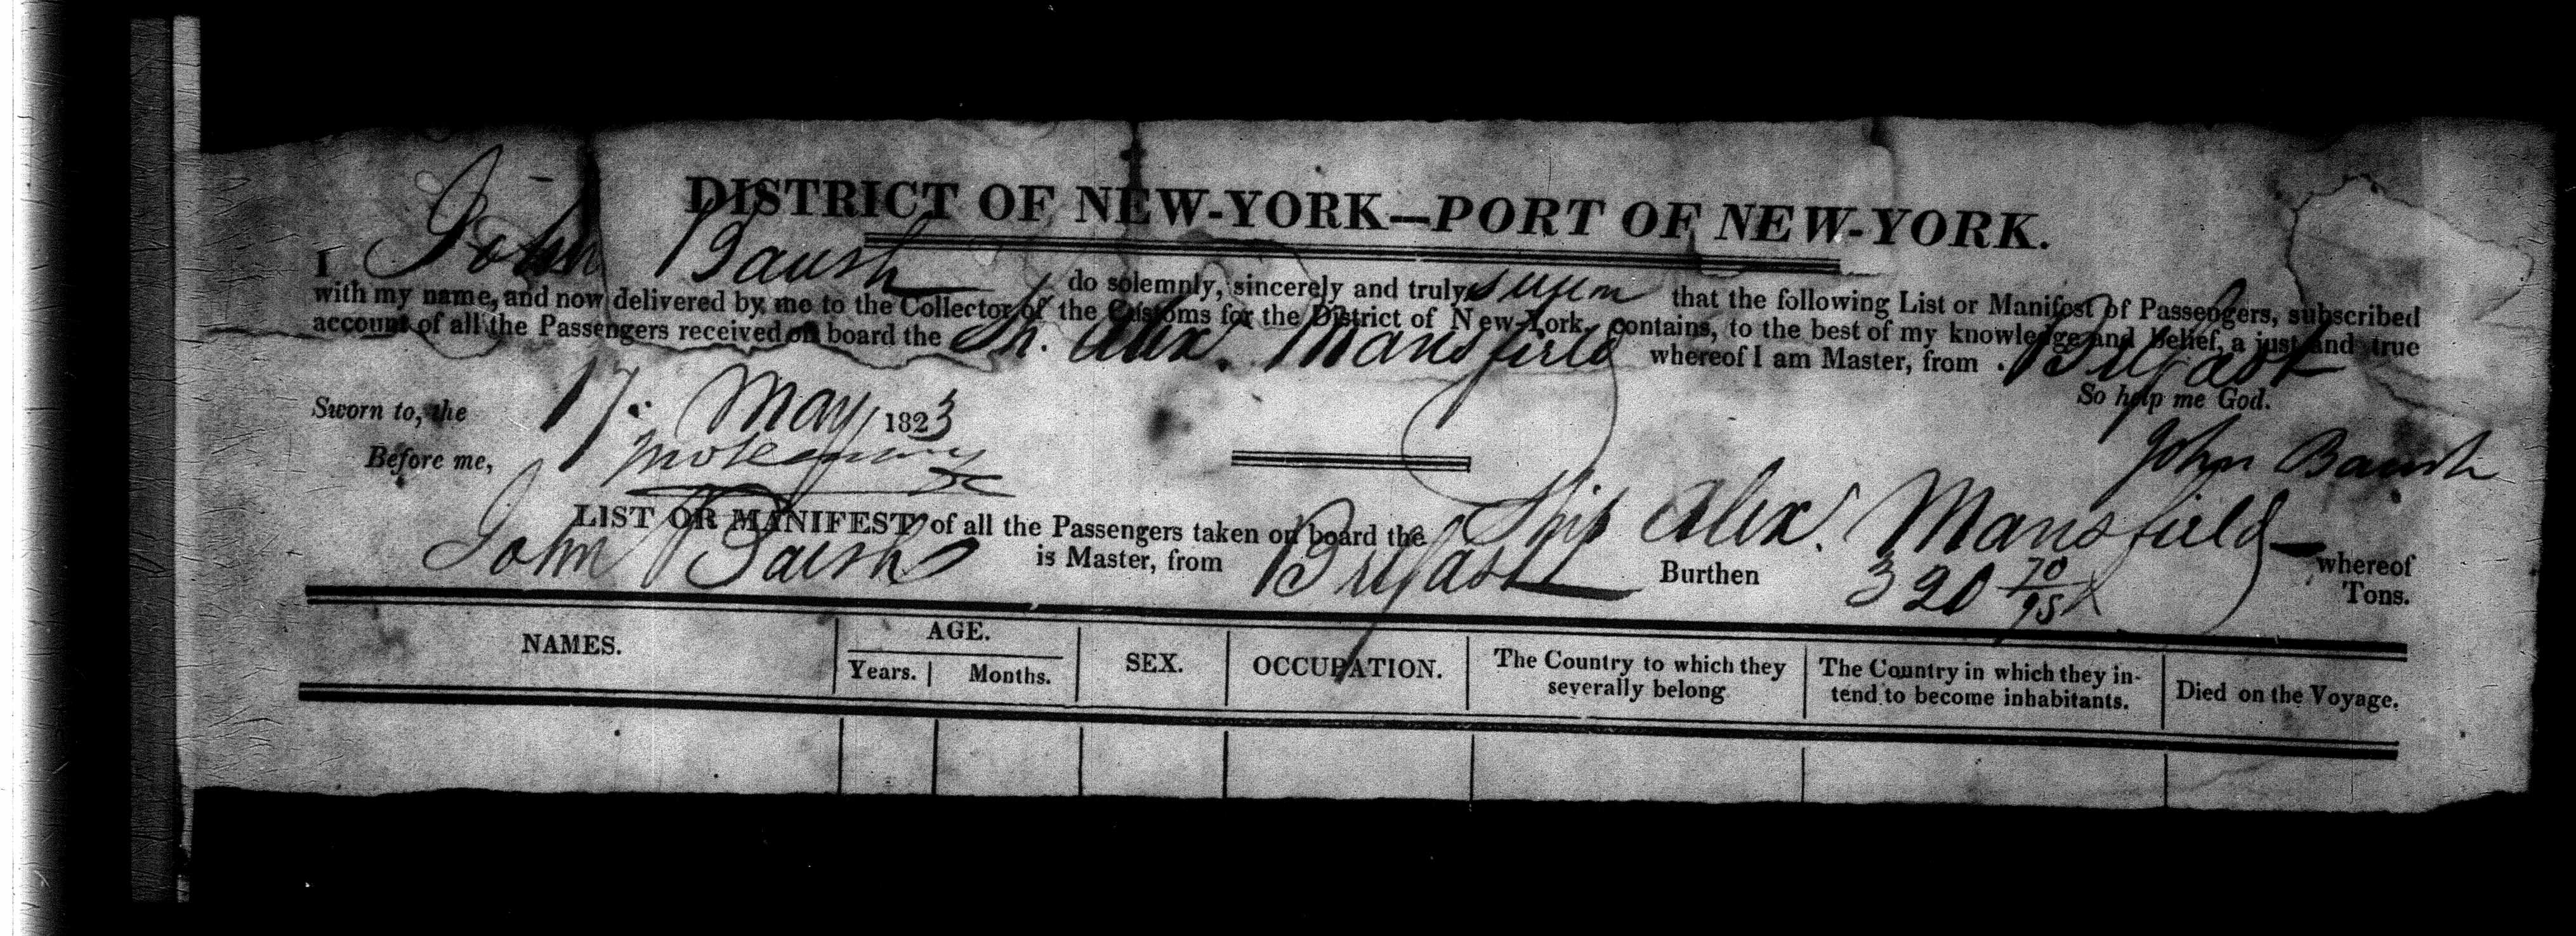 DISTRICT OF NEW-YORK—PORT OF NEW-YORK.
I John Baush do solemnly, sincerely and truly swear that the following List or Manifest of Passengers, subscribed
with my name, and now delivered by me to the Collector of the Customs for the District of New-York, contains, to the best of my knowledge and belief, a just and true
account of all the Passengers received on board the Sh. Alex. Mansfield whereof I am Master, from Belfast
So help me God.
Sworn to, the 17 May 1823
John Baush
Before me,
LIST OR MANIFEST of all the Passengers taken on board the Ship Alex. Mansfield whereof
John Baush is Master, from Belfast Burthen 320 70/95 Tons.
NAMES. AGE. SEX. OCCUPATION. The Country to which they severally belong The Country in which they in-
tend to become inhabitants. Died on the Voyage.
Years. Months.